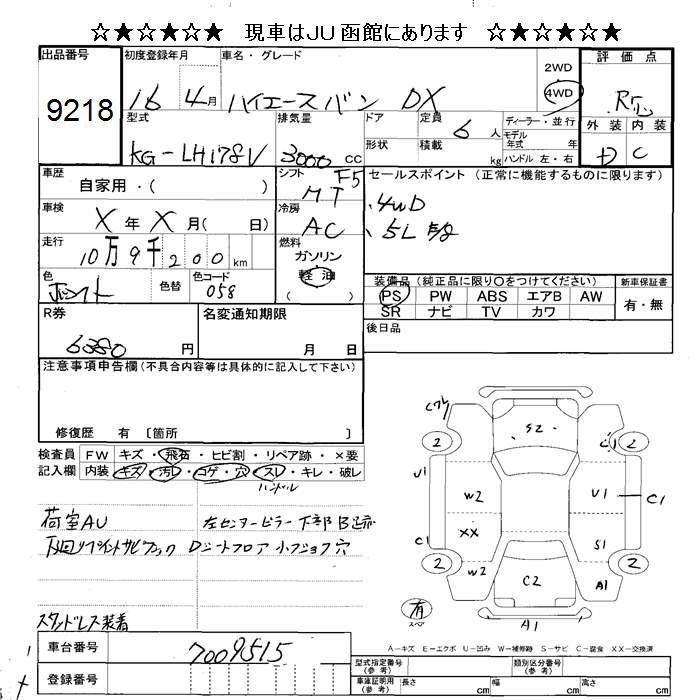 ☆★☆★☆★ 現車はJU函館にあります ☆★☆★☆★
出品番号 9218
初度登録年月 16 4月
車名・グレード ハイエースバン DX
2WD 4WD
評価点
外装 内装
D C
型式 KG-LH178V
排気量 3000 CC
ドア 定員 6人
形状 積載 kg
ディーラー・並行
モデル年式 年
ハンドル 左・右
車歴 自家用・( )
シフト F5 MT
セールスポイント (正常に機能するものに限ります)
.4WD
.5L
車検 X年X月( 日)
冷房 AC
走行 10万9千200km
燃料 ガソリン 軽油 ( )
色 ホワイト 色替
色コード 058
装備品(純正品に限り○をつけてください)
新車保証書 有・無
PS PW ABS エアB AW
SR ナビ TV カワ
R券 6380 円
名変通知期限 月 日
後日品
注意事項申告欄(不具合内容等は具体的に記入して下さい)
修復歴 有 〔箇所 〕
検査員記入欄
FW キズ・飛石・ヒビ割・リペア跡・×要
内装 キズ・汚レ・コゲ・穴・スレ・キレ・破レ
ハンドル
荷室AU 左センターピラー下部B
Dシートフロア
スタッドレス装着
S2
2 2
U1 W2 U1 C1
C1 XX S1
2 W2 C2 A1 2
A1
有
スペア
A－キズ E－エクボ U－凹み W－補修跡 S－サビ C－腐食 XX－交換済
車台番号 7009515
登録番号
型式指定番号(参考) 類別区分番号(参考)
車庫証明用(参考) 長さ cm 幅 cm 高さ cm